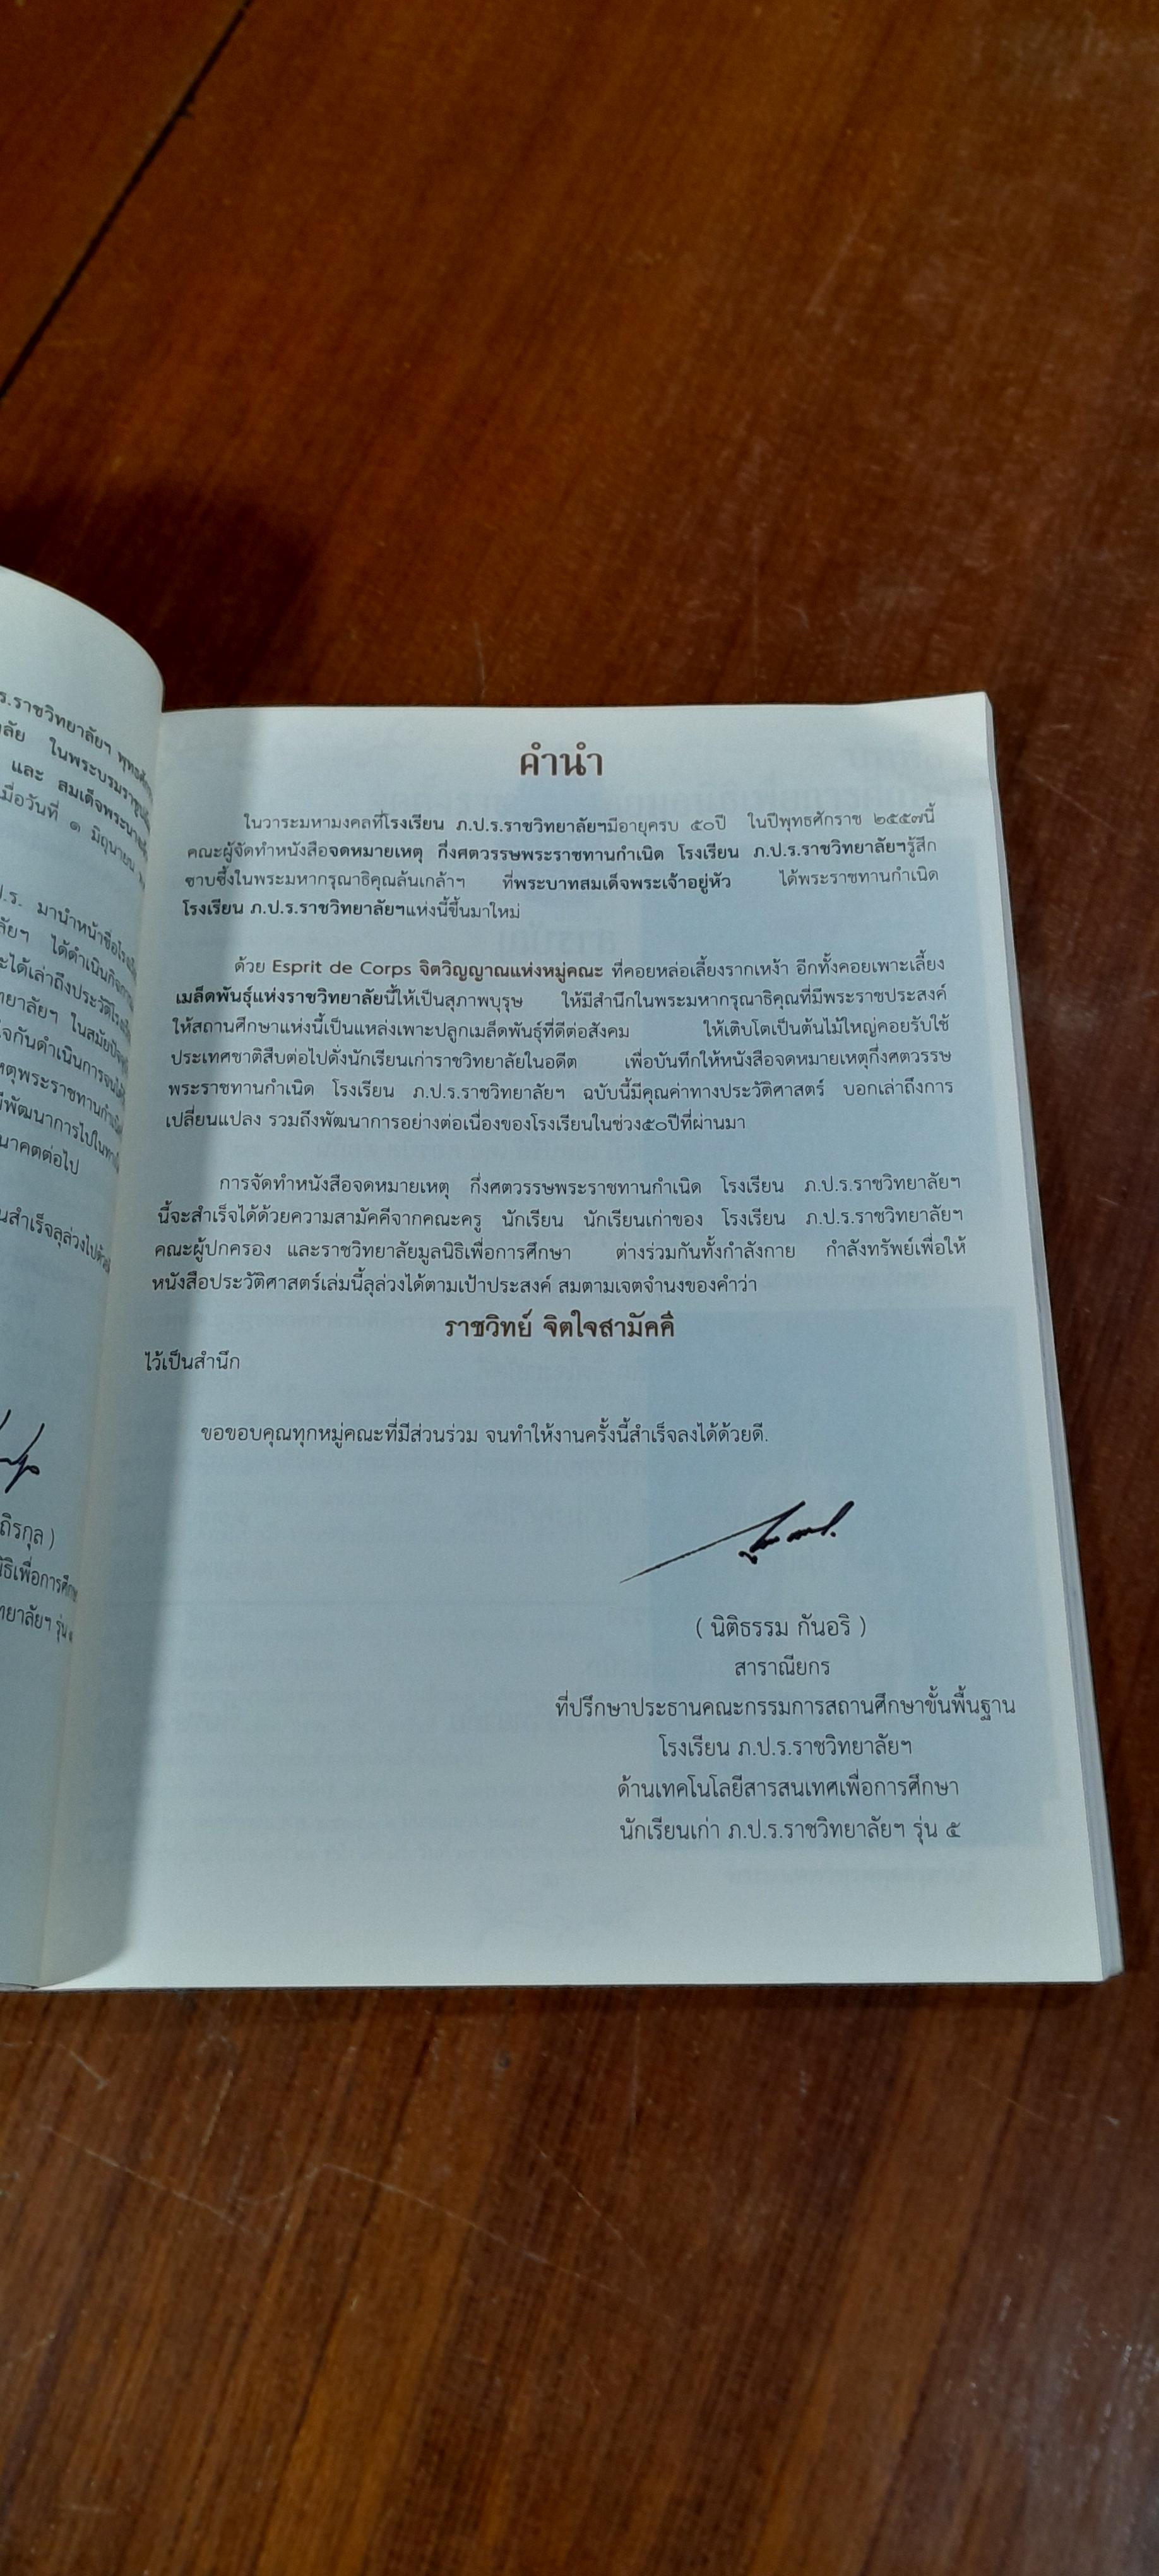 ร.ราชวิทยาลัยฯ
ในพระบรม
และ สมเด็จพระนาง
เมื่อวันที่ ๑ มิถุนายน
ป.ร. มานำหน้าชื่อ
ลัยฯ ได้ดำเนิน
ะได้เล่าถึงประวัติ
ทยาลัยฯ ในสมัย
จกันดำเนินการ
หตุพระราชทาน
มีพัฒนาการไปใน
นาคตต่อไป
นสำเร็จลุล่วงไป
ถิรกุล )
นิธิเพื่อการศึกษา
ทยาลัยฯ รุ่น
คำนำ
ในวาระมหามงคลที่โรงเรียน ภ.ป.ร.ราชวิทยาลัยฯมีอายุครบ ๕๐ปี ในปีพุทธศักราช ๒๕๕๗นี้
คณะผู้จัดทำหนังสือจดหมายเหตุ กึ่งศตวรรษพระราชทานกำเนิด โรงเรียน ภ.ป.ร.ราชวิทยาลัยฯรู้สึก
ซาบซึ้งในพระมหากรุณาธิคุณล้นเกล้าฯ ที่พระบาทสมเด็จพระเจ้าอยู่หัว ได้พระราชทานกำเนิด
โรงเรียน ภ.ป.ร.ราชวิทยาลัยฯแห่งนี้ขึ้นมาใหม่
ด้วย Esprit de Corps จิตวิญญาณแห่งหมู่คณะ ที่คอยหล่อเลี้ยงรากเหง้า อีกทั้งคอยเพาะเลี้ยง
เมล็ดพันธุ์แห่งราชวิทยาลัยนี้ให้เป็นสุภาพบุรุษ ให้มีสำนึกในพระมหากรุณาธิคุณที่มีพระราชประสงค์
ให้สถานศึกษาแห่งนี้เป็นแหล่งเพาะปลูกเมล็ดพันธุ์ที่ดีต่อสังคม ให้เติบโตเป็นต้นไม้ใหญ่คอยรับใช้
ประเทศชาติสืบต่อไปดั่งนักเรียนเก่าราชวิทยาลัยในอดีต เพื่อบันทึกให้หนังสือจดหมายเหตุกึ่งศตวรรษ
พระราชทานกำเนิด โรงเรียน ภ.ป.ร.ราชวิทยาลัยฯ ฉบับนี้มีคุณค่าทางประวัติศาสตร์ บอกเล่าถึงการ
เปลี่ยนแปลง รวมถึงพัฒนาการอย่างต่อเนื่องของโรงเรียนในช่วง๕๐ปีที่ผ่านมา
การจัดทำหนังสือจดหมายเหตุ กึ่งศตวรรษพระราชทานกำเนิด โรงเรียน ภ.ป.ร.ราชวิทยาลัยฯ
นี้จะสำเร็จได้ด้วยความสามัคคีจากคณะครู นักเรียน นักเรียนเก่าของ โรงเรียน ภ.ป.ร.ราชวิทยาลัยฯ
คณะผู้ปกครอง และราชวิทยาลัยมูลนิธิเพื่อการศึกษา ต่างร่วมกันทั้งกำลังกาย กำลังทรัพย์เพื่อให้
หนังสือประวัติศาสตร์เล่มนี้ลุล่วงได้ตามเป้าประสงค์ สมตามเจตจำนงของคำว่า
ราชวิทย์ จิตใจสามัคคี
ไว้เป็นสำนึก
ขอขอบคุณทุกหมู่คณะที่มีส่วนร่วม จนทำให้งานครั้งนี้สำเร็จลงได้ด้วยดี.
( นิติธรรม กันอริ )
สาราณียกร
ที่ปรึกษาประธานคณะกรรมการสถานศึกษาขั้นพื้นฐาน
โรงเรียน ภ.ป.ร.ราชวิทยาลัยฯ
ด้านเทคโนโลยีสารสนเทศเพื่อการศึกษา
นักเรียนเก่า ภ.ป.ร.ราชวิทยาลัยฯ รุ่น ๕